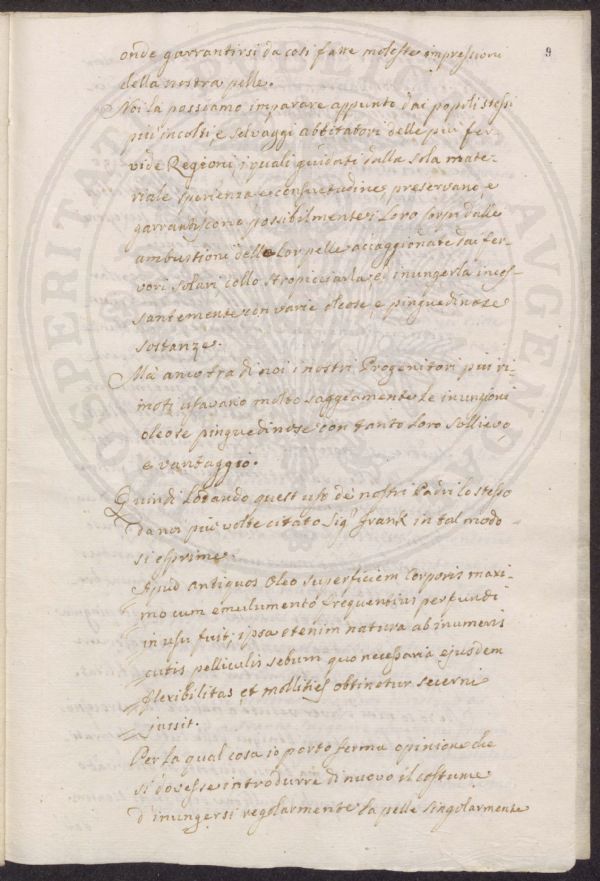 9
onde garrantirsi da cosi fatte moleste impressioni
della nostra pelle.
Noi la possiamo imparare appunto dai popoli stessi
più incolti, e selvaggi abbitatori delle più fer-
vide Regioni, i quali guidati dalla sola mate-
riale sperienza e consuetudine, preservano, e
garrantiscono possibilmente i Loro corpi dalle
ambustioni delle Lor pelle accaggionate dai fer-
vori solari collo stropicciarla, ed inungerla inces-
santemente con varie oleose, e pinguedinose
sostanze.
Mà anco tra di noi i nostri Progenitori più ri-
moti usavano molto saggiamente le inunzioni
oleose pinguedinose con tanto Loro sollievo,
e vantaggio.
Quindi Lodando quest uso de nostri Padri lo stesso
da noi più volte citato Sigr Frank in tal modo
si esprime.
Apud antiquos oleo superficiem Corporis maxi-
mo cum emulumento frequentius perfundi
in usu fuit; ipsa etenim natura ab inumeris
cutis pelliculis sebum quo necessaria ejusdem
flexibilitas, et mollities obtinetur secerni
jussit.
Per la qual cosa io porto ferma opinione che
si dovesse introdurre di nuovo il costume
d'inungersi regolarmente la pelle singolarmente
PROSPERITATI PUBLICÆ AVGENDÆ